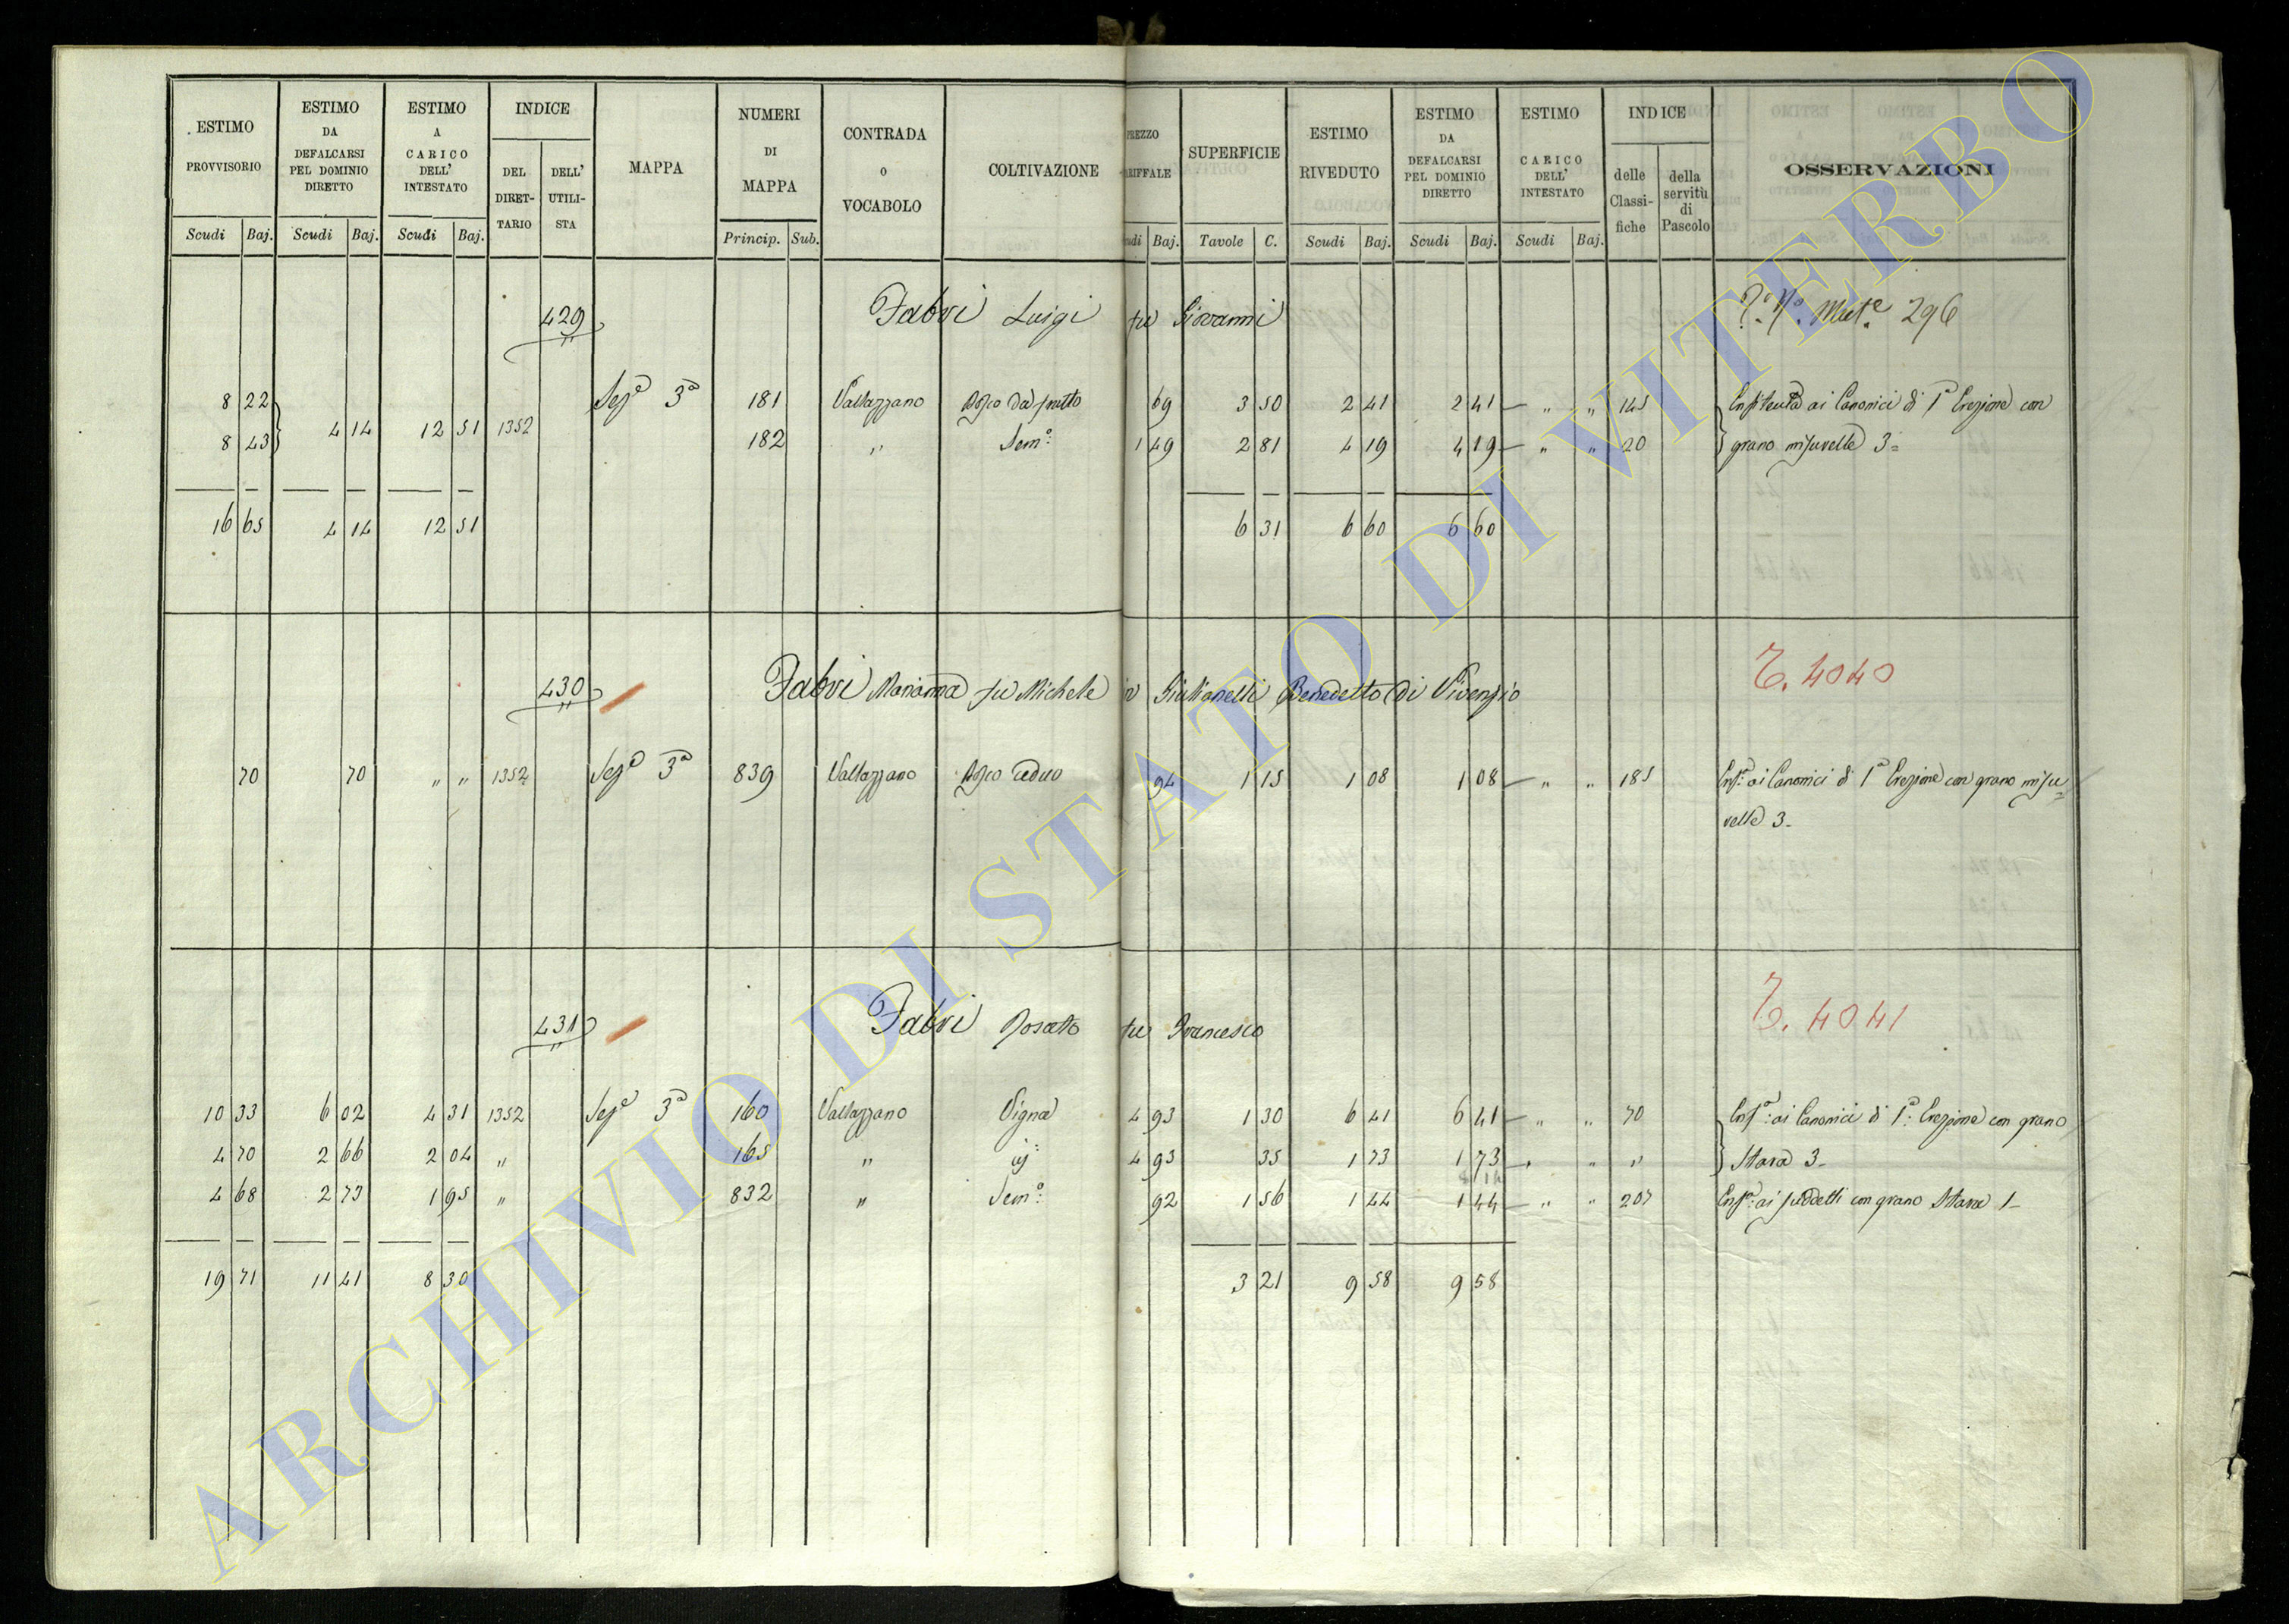 ESTIMO PROVVISORIO
ESTIMO DA DEFALCARSI PEL DOMINIO DIRETTO
ESTIMO A CARICO DELL' INTESTATO
INDICE
DEL DIRET-TARIO
DELL' UTILI-STA
MAPPA
NUMERI DI MAPPA
CONTRADA O VOCABOLO
COLTIVAZIONE
PREZZO
SUPERFICIE
ESTIMO RIVEDUTO
ESTIMO DA DEFALCARSI PEL DOMINIO DIRETTO
ESTIMO CARICO DELL' INTESTATO
INDICE
delle Classi-fiche
della servitù di Pascolo
OSSERVAZIONI
Scudi Baj. Scudi Baj. Scudi Baj. Princip. Sub. Baj. Tavole C. Scudi Baj. Scudi Baj. Scudi Baj.
429 Fabri Luigi fu Giovanni 296
8 22 Sez.e 3a 181 Vallazzano Bosco da frutto 69 3 50 2 41 2 41 — " " 145 Enfiteusi ai Canonici di 1a Erezione con
4 14 12 51 1352
8 43 182 " Sem.o 1 49 2 81 4 19 4 19 — " " 20 grano misurelle 3 =
16 65 4 14 12 51 6 31 6 60 6 60
430 Fabri Marianna fu Michele in Giulianelli Benedetto di Vicenzio T. 4040
70 70 " " 1352 Sez.e 3a 839 Vallazzano Bosco ceduo 94 1 15 1 08 1 08 — " " 185 Enf.a ai Canonici di 1a Erezione con grano misu=
relle 3 -
431 Fabri Rosato fu Francesco T. 4041
10 33 6 02 4 31 1352 Sez.e 3a 160 Vallazzano Vigna 4 93 1 30 6 41 6 41 — " " 70 Enf.a ai Canonici di 1a Erezione con grano
4 70 2 66 2 04 " 165 " 4 93 35 1 73 1 73 — " " " Stara 3 -
4 68 2 73 1 95 " 832 " Sem.o 92 1 56 1 44 1 44 — " " 207 Enf.a ai suddetti con grano Stara 1 -
19 71 11 41 8 30 3 21 9 58 9 58
ARCHIVIO DI STATO DI VITERBO